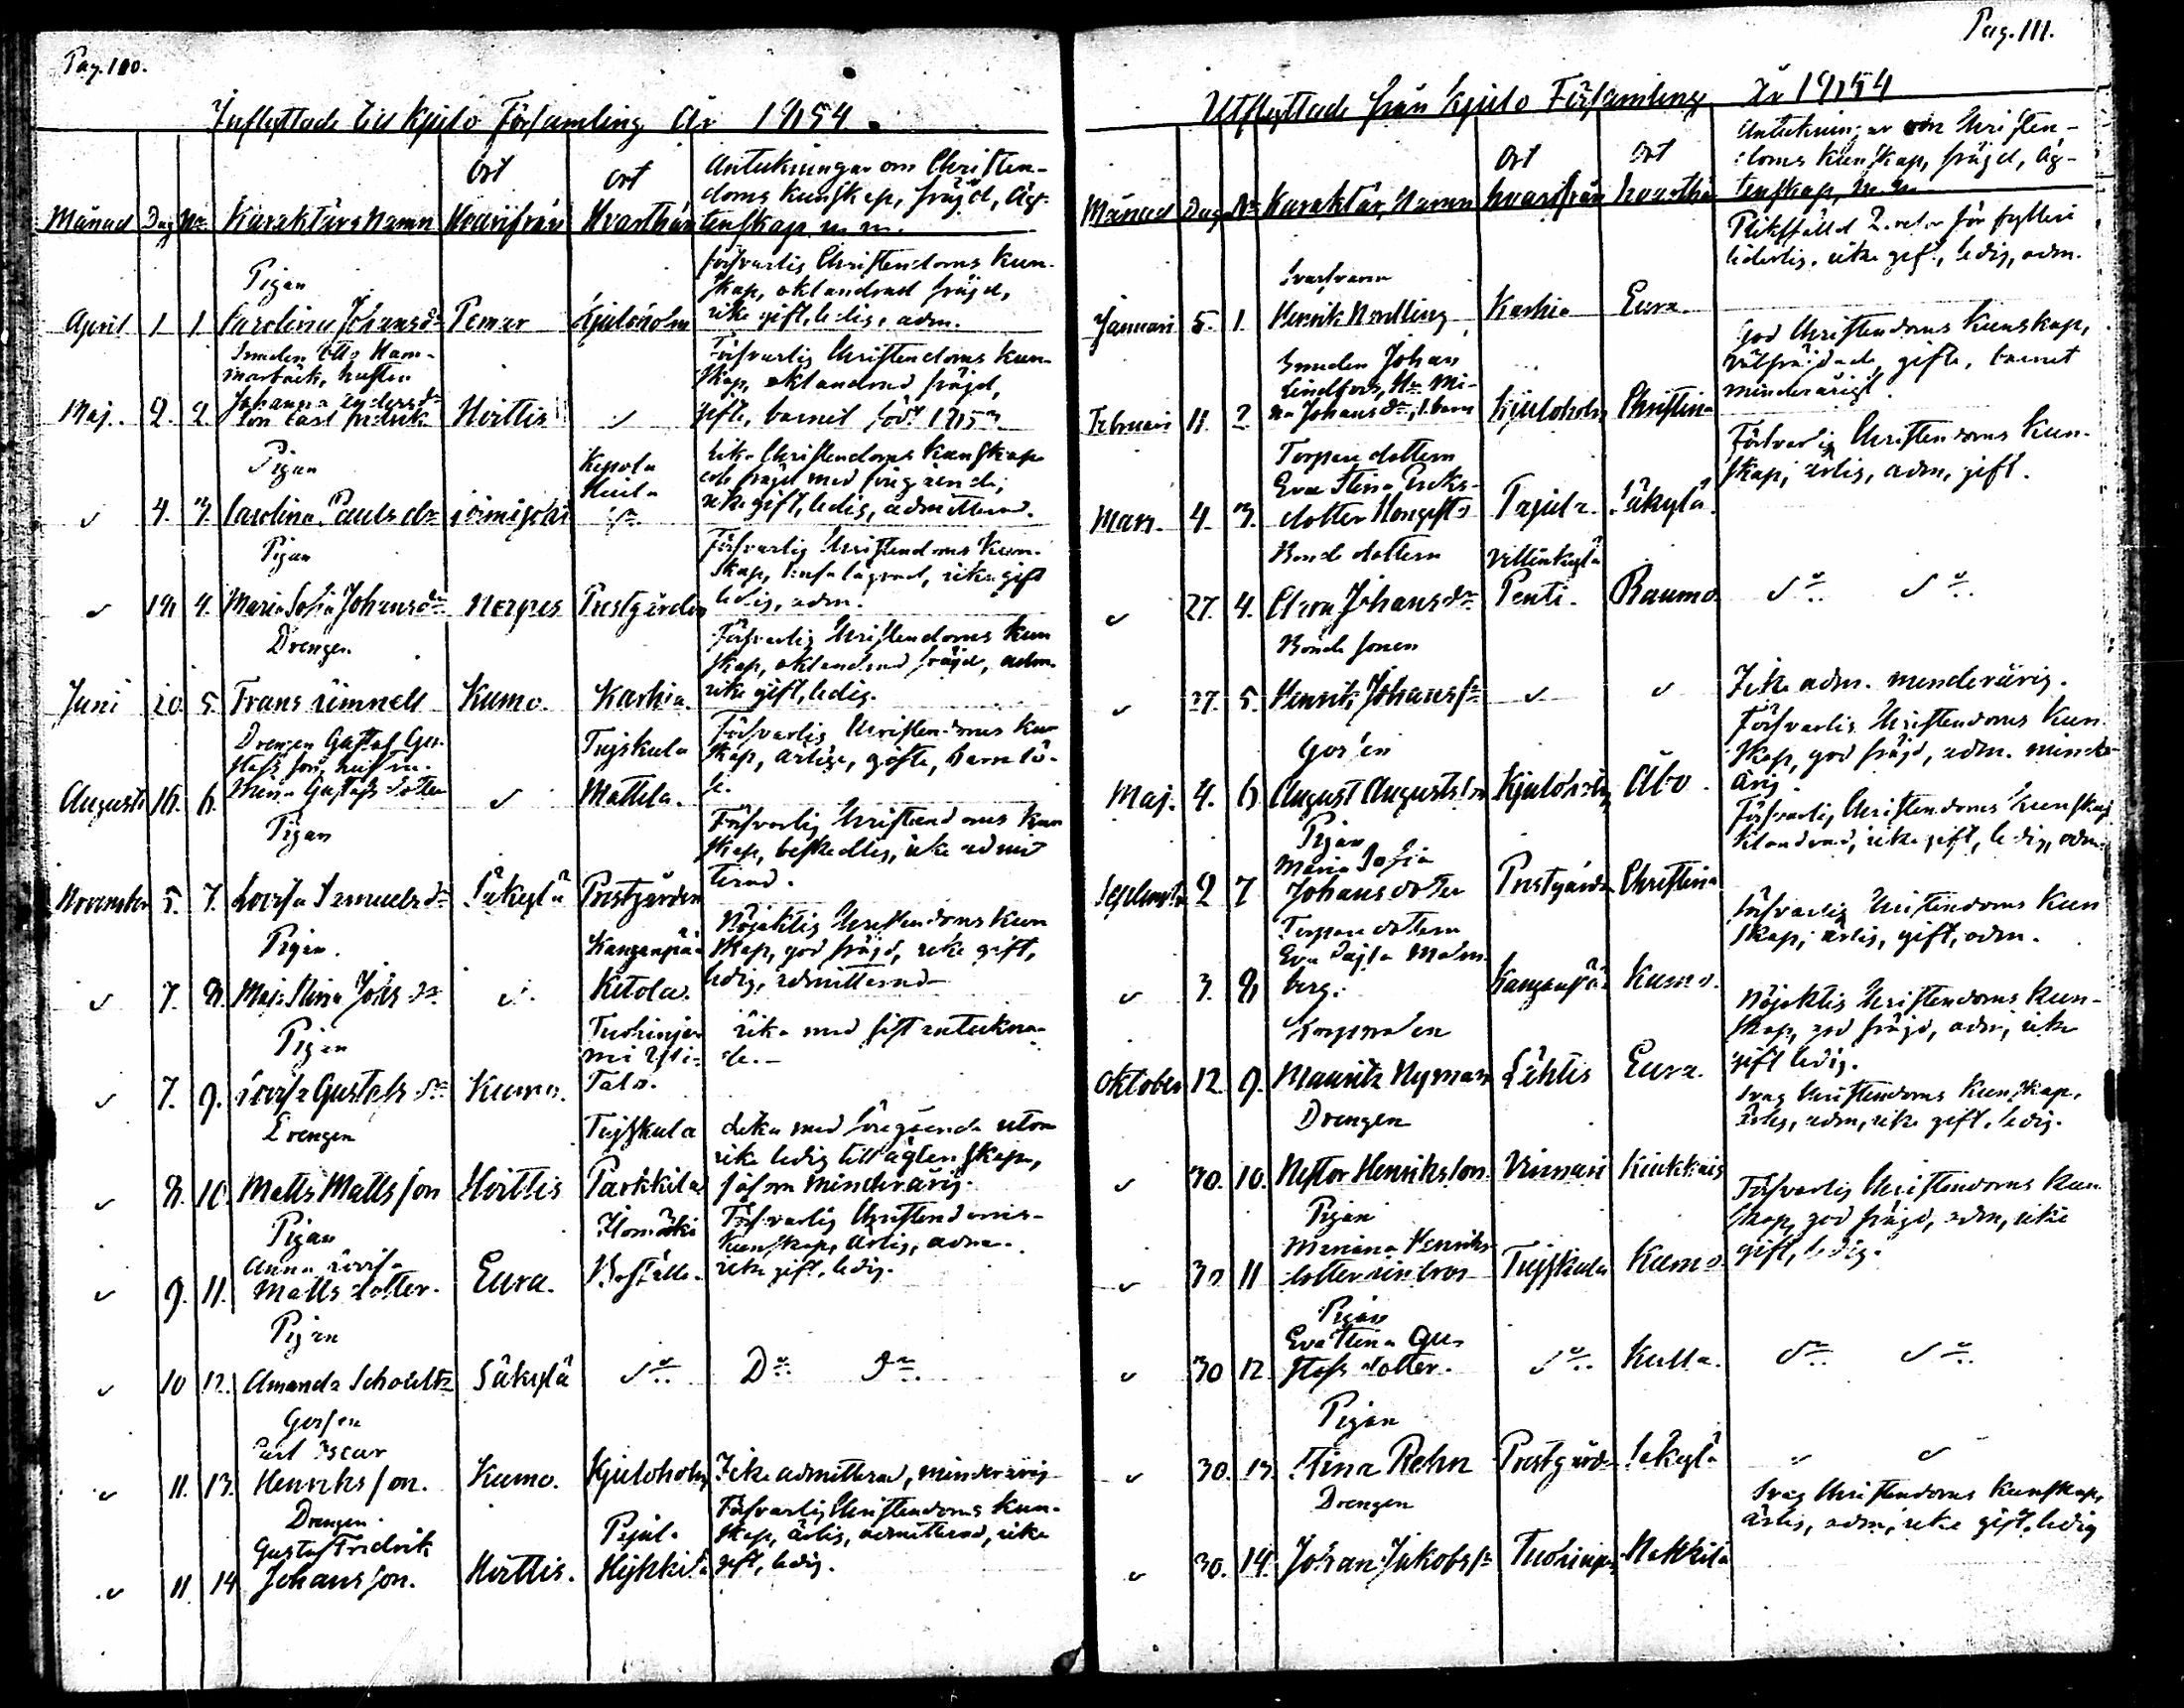 Pag. 110.
Inflyttade till Kjulo Församling År 1854.
Månad Dag No Karaktärs Namn Ort Hvarifrån Ort Hvarthän Anteckningar om Christen-
doms kunskap, frägd, Äg-
tenskap m. m.
Pigan
April 1 1 Carolina Johansdr Pemar Kjuloholm
försvarlig Christendoms kun-
skap, oklandrad frägd,
icke gift, ledig, adm.
Smeden Otto Ham-
marbäck, hustru
Johanna Andersdr
Maj. 2. 2 Son Carl Fredrik Hörttis
Försvarlig Christendoms kun-
skap, oklandrad frägd,
gifte, barnet född 1853
Pigan
4. 3. Carolina Paulsdr Kepola Heikila
Lika Christendoms kunskap
och frägd med föregående,
icke gift, ledig, admitterad.
Pigan
18 4. Maria Sofia Johansdr Nerpes Prestgården
Försvarlig Christendoms kun-
skap, icke gift
ledig, adm.
Drengen
Juni 20 5. Frans Limnell Kumo. Karhia.
Försvarlig Christendoms kun
skap, oklandrad frägd, adm.
icke gift, ledig.
Drengen Gustaf Gu-
stafs son, hustru
Augusti 16. 6. Mina Gustafs dotter Tujskula Mattila.
Försvarlig Christendoms kun
skap, ärlige, gifte, barnlö-
se.
Pigan
November 5. 7. Lovisa Samuelsdr Säkylä Prestgården
Försvarlig Christendoms kun
skap, beskedlig, icke admit
terad.
Pigan.
7. 8. Maja Stina Johsdr Kanganpää Ketola.
Nöjaktig Christendoms kun
skap, god frägd, icke gift,
ledig, admitterad
Pigan
7. 9. Lovisa Gustafsdr Kumo. Tuohiniemi Yli-
Talo.
Lika med sist anteckna-
de.-
Drengen
8. 10. Matts Mattsson Hörttis Tujskula Parkkila
Lika med föregående utom
icke ledig till ägtenskap,
såsom minderårig.
Pigan
Anna Lovisa
9. 11. Mattsdotter. Eura. Ilomäki Boställe.
Försvarlig Christendoms-
kunskap, ärlig, adm.
icke gift, ledig.
Pigan
10 12. Amanda Schoultz Säkylä do Do Do
Gossen
Carl Oscar
11. 13. Henriksson. Kumo. Kjuloholm Icke admitterad, minderårig
Drengen.
Gustaf Fredrik
11 14 Johansson. Hörttis. Pajula Hykkilä
Försvarlig Christendoms kun-
skap, ärlig, admitterad, icke
gift, ledig.
Pag. 111.
Utflyttade från Kjulo Församling År 1854
Månad Dag No Karaktär, Namn Ort hvarifrån Ort hvarthän
Anteckningar om Christen-
doms kunskap, frägd, Äg-
tenskap, m. m.
Svarfvaren
Januari 5. 1. Henrik Nordling Karhia Eura.
Pliktfälld 2. resor för fylleri
liderlig, icke gift, ledig, adm.
Smeden Johan
Lindfors, Hu Mi-
Februari 11. 2 na Johansdr, 1. barn Kjuloholm Christina
God Christendoms kunskap,
välfräjdade, gifte, barnet
minderårigt.
Torpare dottern
Eva Stina Eriks-
Mars. 4. 3. dotter Hongsto Pajula. Säkylä.
Försvarlig Christendoms kun-
skap, ärlig, adm, gift.
Bonde dottern
27. 4. Johansdr Villenkylä Penti. Raumo. do do
Bonde sonen
27. 5. Henrik Johansson Icke adm. minderårig.
Gossen
Maj. 4. 6 August Augustsson Kjuloholm Åbo.
Försvarlig Christendoms kun-
skap, god frägd, adm. minder
årig.
Pigan
Maria Sofia
September 2 7 Johansdotter Prestgården Christina
Försvarlig Christendoms kunskap
klandrad, icke gift, ledig, adm.
Torpare dottern
Eva Cajsa Malm-
3. 8 berg. Kanganpää Kumo.
försvarlig Christendoms kun
skap, ärlig, gift, adm.
Korpralen
Oktober 12. 9. Mauritz Nyman Lähtis Eura.
Nöjaktig Christendoms kun-
skap, god frägd, adm, icke
gift ledig.
Drengen
30. 10. Nestor Henriksson. Vinnari Kiukkais
Svag Christendoms kunskap,
ärlig, adm, icke gift, ledig.
Pigan
Mariana Henriks-
30 11 dotter Tujskula Kumo.
Försvarlig Christendoms kun
skap, god frägd, adm, icke
gift, ledig.
Pigan
Eva Stina Gu-
30 12 stafsdotter. do Kulla. do do
Pigan
30. 13. Stina Rehn Prestgården Säkylä
Drengen
30. 14. Johan Jakobsson Tuohiniemi Nakkila
Svag Christendoms kunskap,
ärlig, adm, icke gift, ledig